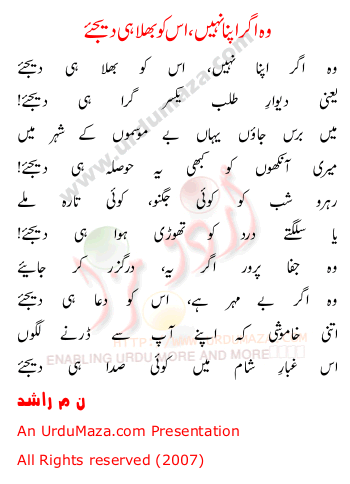 وہ اگر اپنا نہیں، اس کو بھلا ہی دیجئے
وہ اگر اپنا نہیں، اس کو بھلا ہی دیجئے
یعنی دیوارِ طلب یکسر گرا ہی دیجئے!
میں برس جاؤں یہاں بے موسموں کے شہر میں
میری آنکھوں کو کبھی یہ حوصلہ ہی دیجئے!
رہرو شب کو کوئی جگنو، کوئی تارہ ملے
یا سلگتے درد کو تھوڑی ہوا ہی دیجئے!
وہ جفا پرور اگر یہ، درگزر کر جائیے
وہ اگر بے مہر ہے، اس کو دعا ہی دیجئے
اتنی خاموشی کہ اپنے آپ سے ڈرنے لگوں
اس غبارِ شام میں کوئی صدا ہی دیجئے
ن م راشد
An UrduMaza.com Presentation
All Rights reserved (2007)
www.urdumaza.com
اردو مزا
WWW.URDUMAZA.COM
ENABLING URDU MORE AND MORE